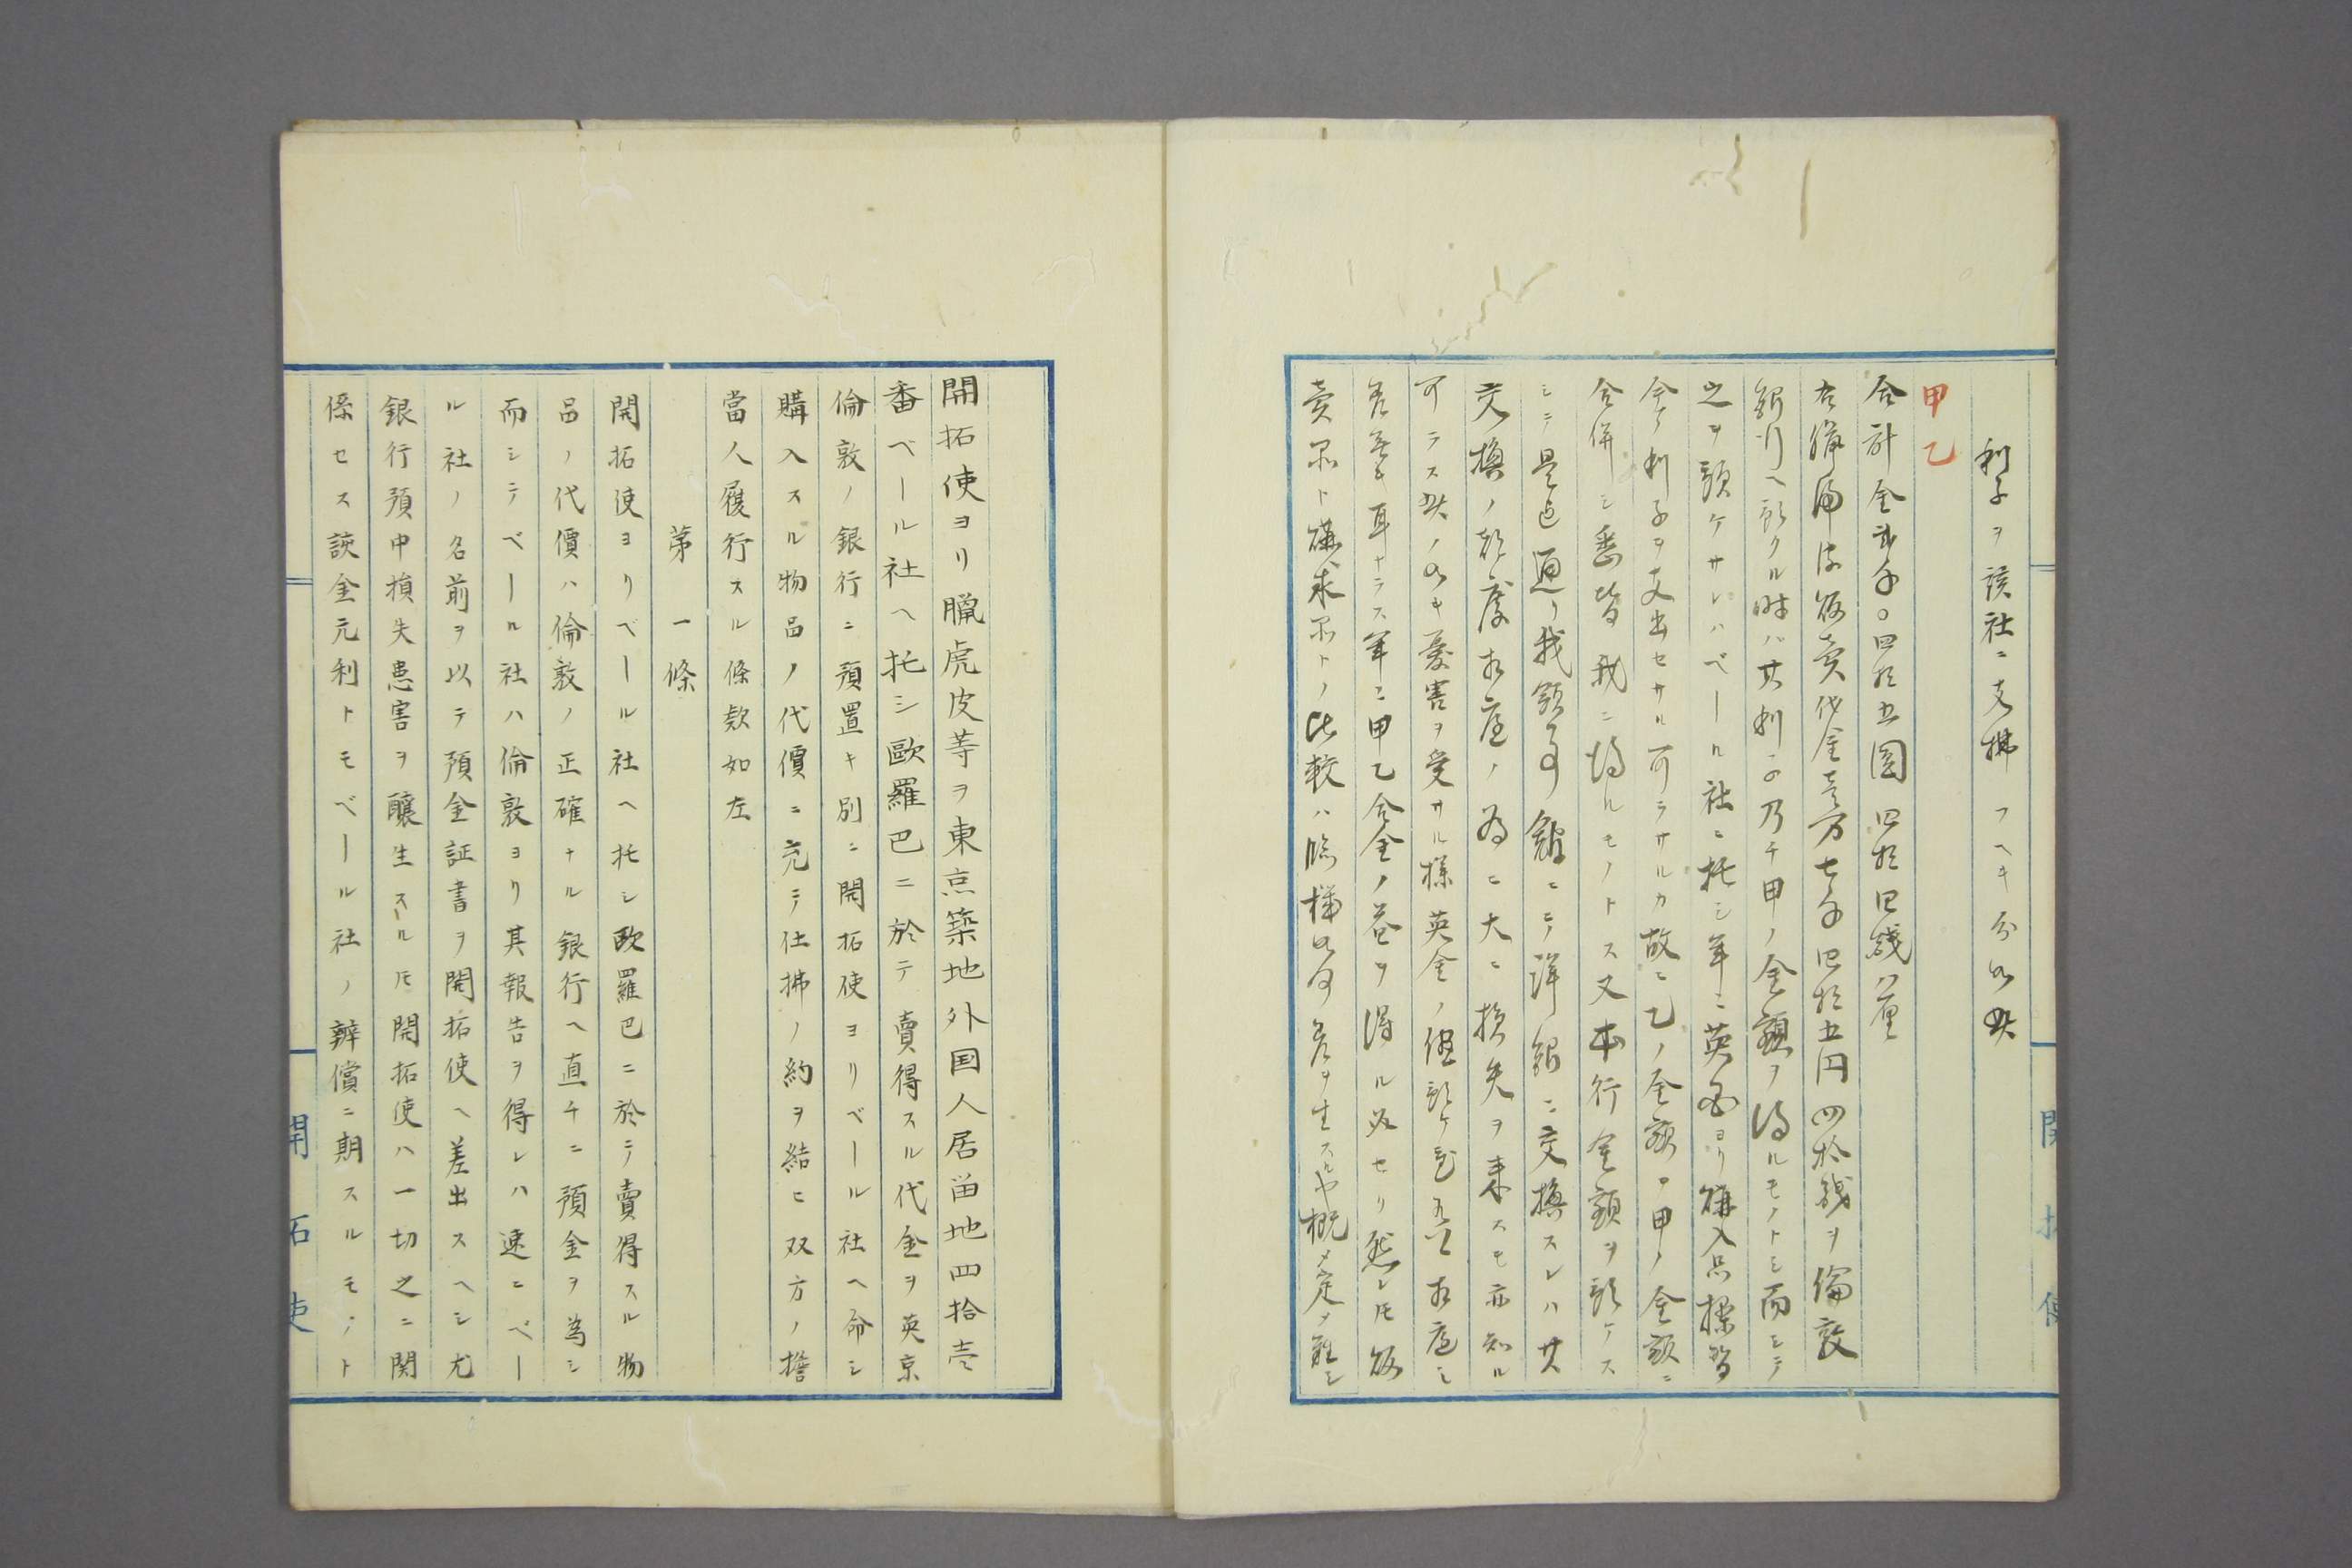 利子ヲ該社ニ支拂フヘキ分如此
甲乙
合計金弐千〇四拾五圓四拾四銭八厘
右臘虎皮販賣代金壱万七千四拾五円四拾銭ヲ倫敦
銀行ヘ預クル時ハ其利子乃チ甲ノ金額ヲ得ルモノトシ而シテ
之ヲ預ケサレハベール社ニ托シ年ニ英国ヨリ購入品
利子ヲ支出セサル可ラサルカ故ニ乙ノ金額モ甲ノ金額ニ
合併シ悉皆我ニ得ルモノトス又本行金額ヲ預ケス
シテ是迠通リ我領事館ニテ洋銀ニ交換スレハ其
交換ノ都度相庭ノ為ニ大ニ損失ヲ来スモ亦知ル
可ラス此ノ如キ憂害ヲ受サル様英金ノ侭預ケ
差無キ耳ナラス年ニ甲乙合金ノ益ヲ得ル
賣品ト購求品トノ比較ハ
開拓使ヨリ臘虎皮等ヲ東京築地外国人居留地四拾壱
番ベール社ヘ托シ歐羅巴ニ於テ賣得スル代金ヲ英京
倫敦ノ銀行ニ預置キ別ニ開拓使ヨリベール社ヘ命シ
購入スル物品ノ代價ニ充テ仕拂ノ約ヲ結ヒ双方ノ擔
當人履行スル條款如左
第一條
開拓使ヨリベール社ヘ托シ歐羅巴ニ於テ賣得スル物
品ノ代價ハ倫敦ノ正確ナル銀行ヘ直チニ預金ヲ為シ
而シテベール社ハ倫敦ヨリ其報告ヲ得レハ速ニベー
ル社ノ名前ヲ以テ預金証書ヲ開拓使ヘ差出スヘシ尤
銀行預中損失患害ヲ釀生スルモ開拓使ハ一切之ニ関
係セス該金元利トモベール社ノ辨償ニ期スルモノト
開拓使
開拓使